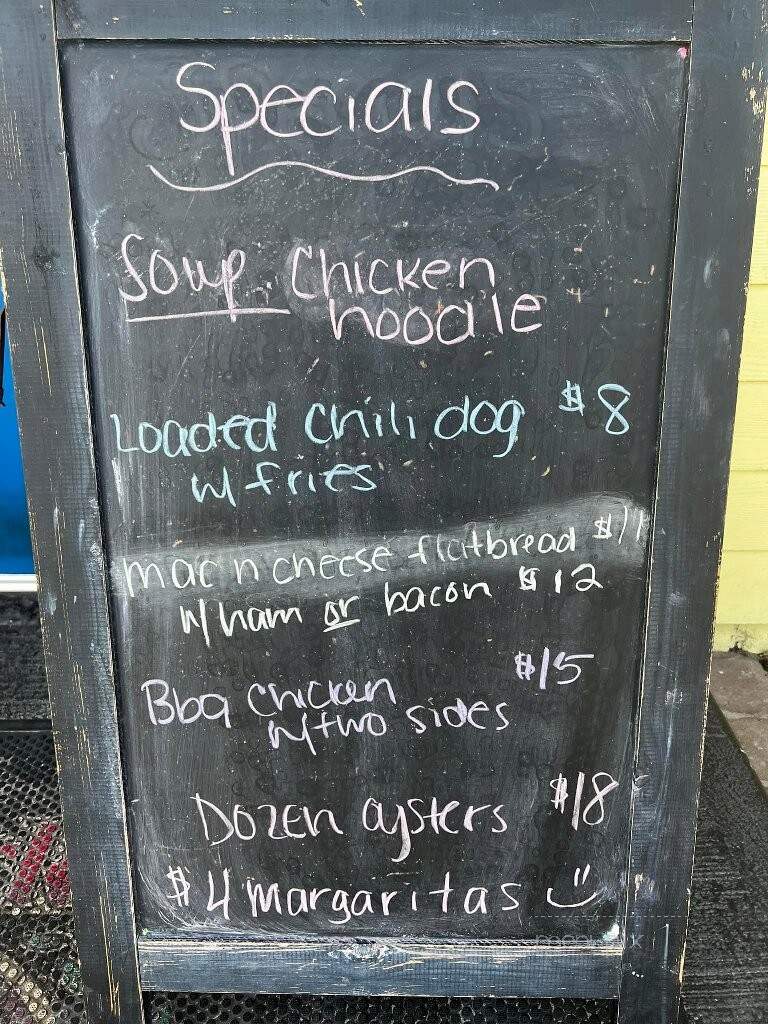 Specials
Soup. Chicken
noodle
Loaded Chili dog $8
w/ fries
mac n cheese flatbread $11
w/ ham or bacon $12
Bbq chicken $15
w/ two sides
Dozen oysters $18
$4 margaritas